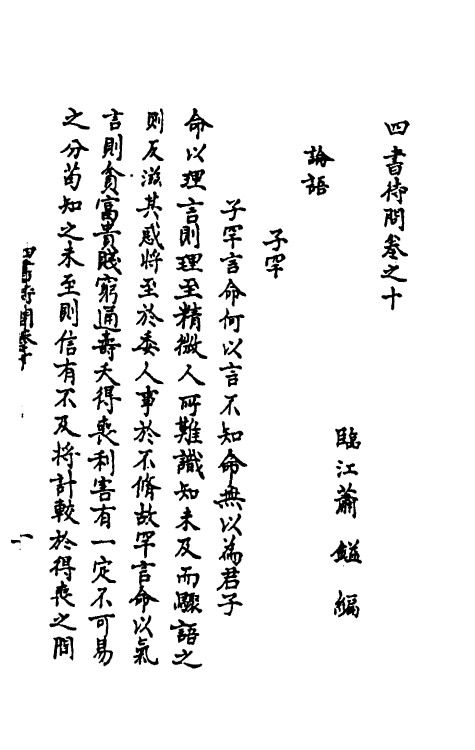 四書待問卷之十
臨江蕭鎰編
論語
子罕
子罕言命何以言不知命無以為君子
命以理言則理至精微人所難識知未及而驟語之
則反滋其惑將至於委人事於不脩故罕言命以氣
言則貧富貴賤窮通壽夭得喪利害有一定不可易
之分苟知之未至則信有不及將計較於得喪之間
四書待問卷十
一